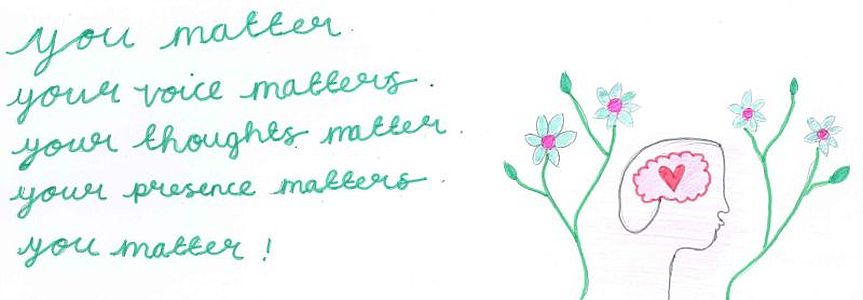 you matter.
your voice matters.
your thoughts matter.
your presence matters.
you matter!